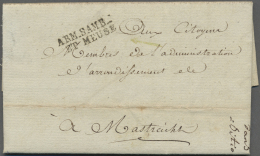 ARM. SAMB.
ET MEUSE
Aux Citoyens
Membre de l'administration
d'arrondissement de
à Mastricht